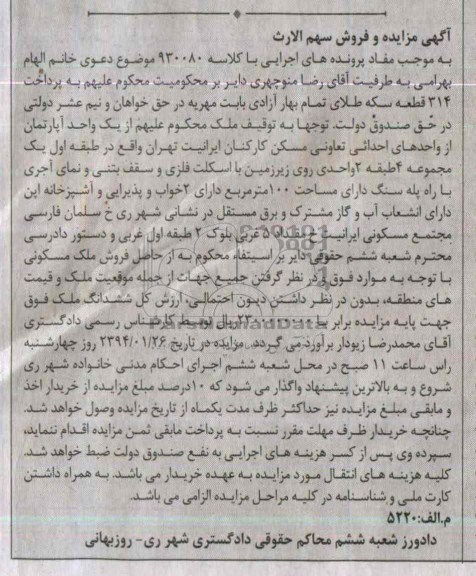 آگهی مزایده و فروش سهم الارث
به موجب مفاد پرونده های اجرایی با کلاسه ۹۳۰۰۸۰ موضوع دعوی خانم الهام
بهرامی به طرفیت آقای رضا منوچهری دایر بر محکومیت محکوم علیهم به پرداخت
۳۱۴ قطعه سکه طلای تمام بهار آزادی بابت مهریه در حق خواهان و نیم عشر دولتی
در حق صندوق دولت. توجها به توقیف ملک محکوم علیهم از یک واحد آپارتمان
از واحدهای احداثی تعاونی مسکن کارکنان ایرانیت تهران واقع در طبقه اول یک
مجموعه ۴طبقه ۲واحدی روی زیرزمین با اسکلت فلزی و سقف بتنی و نمای آجری
با راه پله سنگ دارای مساحت ۱۰۰مترمربع دارای ۲خواب و پذیرایی و آشپزخانه این
دارای انشعاب آب و گاز مشترک و برق مستقل در نشانی شهر ری خ سلمان فارسی
مجتمع مسکونی ایرانیت غربی بلوک ۲ طبقه اول غربی و دستور دادرسی
محترم شعبه ششم حقوقی دایر بر استیفاء محکوم به از حاصل فروش ملک مسکونی
با توجه به موارد فوق و در نظر گرفتن جمیع جهات از جمله موقعیت ملک و قیمت
های منطقه، بدون در نظر داشتن دیون احتمالی، ارزش کل ششدانگ ملک فوق
جهت پایه مزایده برابر با ریال توسط کارشناس رسمی دادگستری
آقای محمدرضا زیودار برآورد می گردد. مزایده در تاریخ ۲۳۹۴/۰۱/۲۶ روز چهارشنبه
راس ساعت ۱۱ صبح در محل شعبه ششم اجرای احکام مدنی خانواده شهر ری
شروع و به بالاترین پیشنهاد واگذار می شود که ۱۰درصد مبلغ مزایده از خریدار اخذ
و مابقی مبلغ مزایده نیز حداکثر ظرف مدت یکماه از تاریخ مزایده وصول خواهد شد.
چنانچه خریدار ظرف مهلت مقرر نسبت به پرداخت مابقی ثمن مزایده اقدام ننماید،
سپرده وی پس از کسر هزینه های اجرایی به نفع صندوق دولت ضبط خواهد شد.
کلیه هزینه های انتقال مورد مزایده به عهده خریدار می باشد. به همراه داشتن
کارت ملی و شناسنامه در کلیه مراحل مزایده الزامی می باشد.
م.الف:۵۲۲۰
دادورز شعبه ششم محاکم حقوقی دادگستری شهر ری- روزبهانی